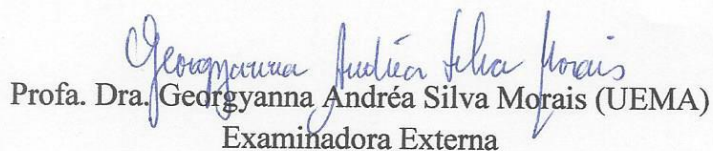 Georgyanna Andréa Silva Morais
Profa. Dra. Georgyanna Andréa Silva Morais (UEMA)
Examinadora Externa